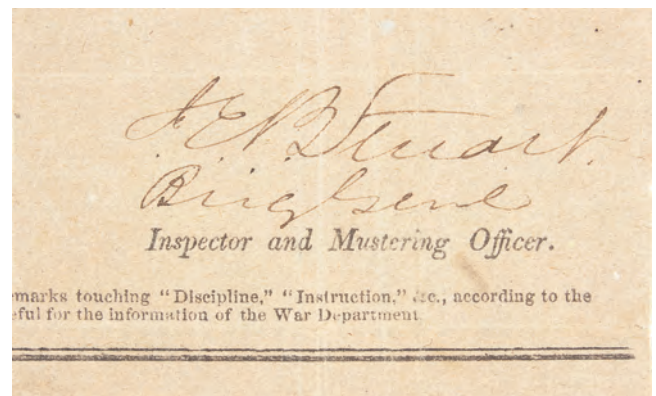 J.E.B. Stuart.
Brig Genl
Inspector and Mustering Officer.
emarks touching "Discipline," "Instruction," &c., according to the
eful for the information of the War Department